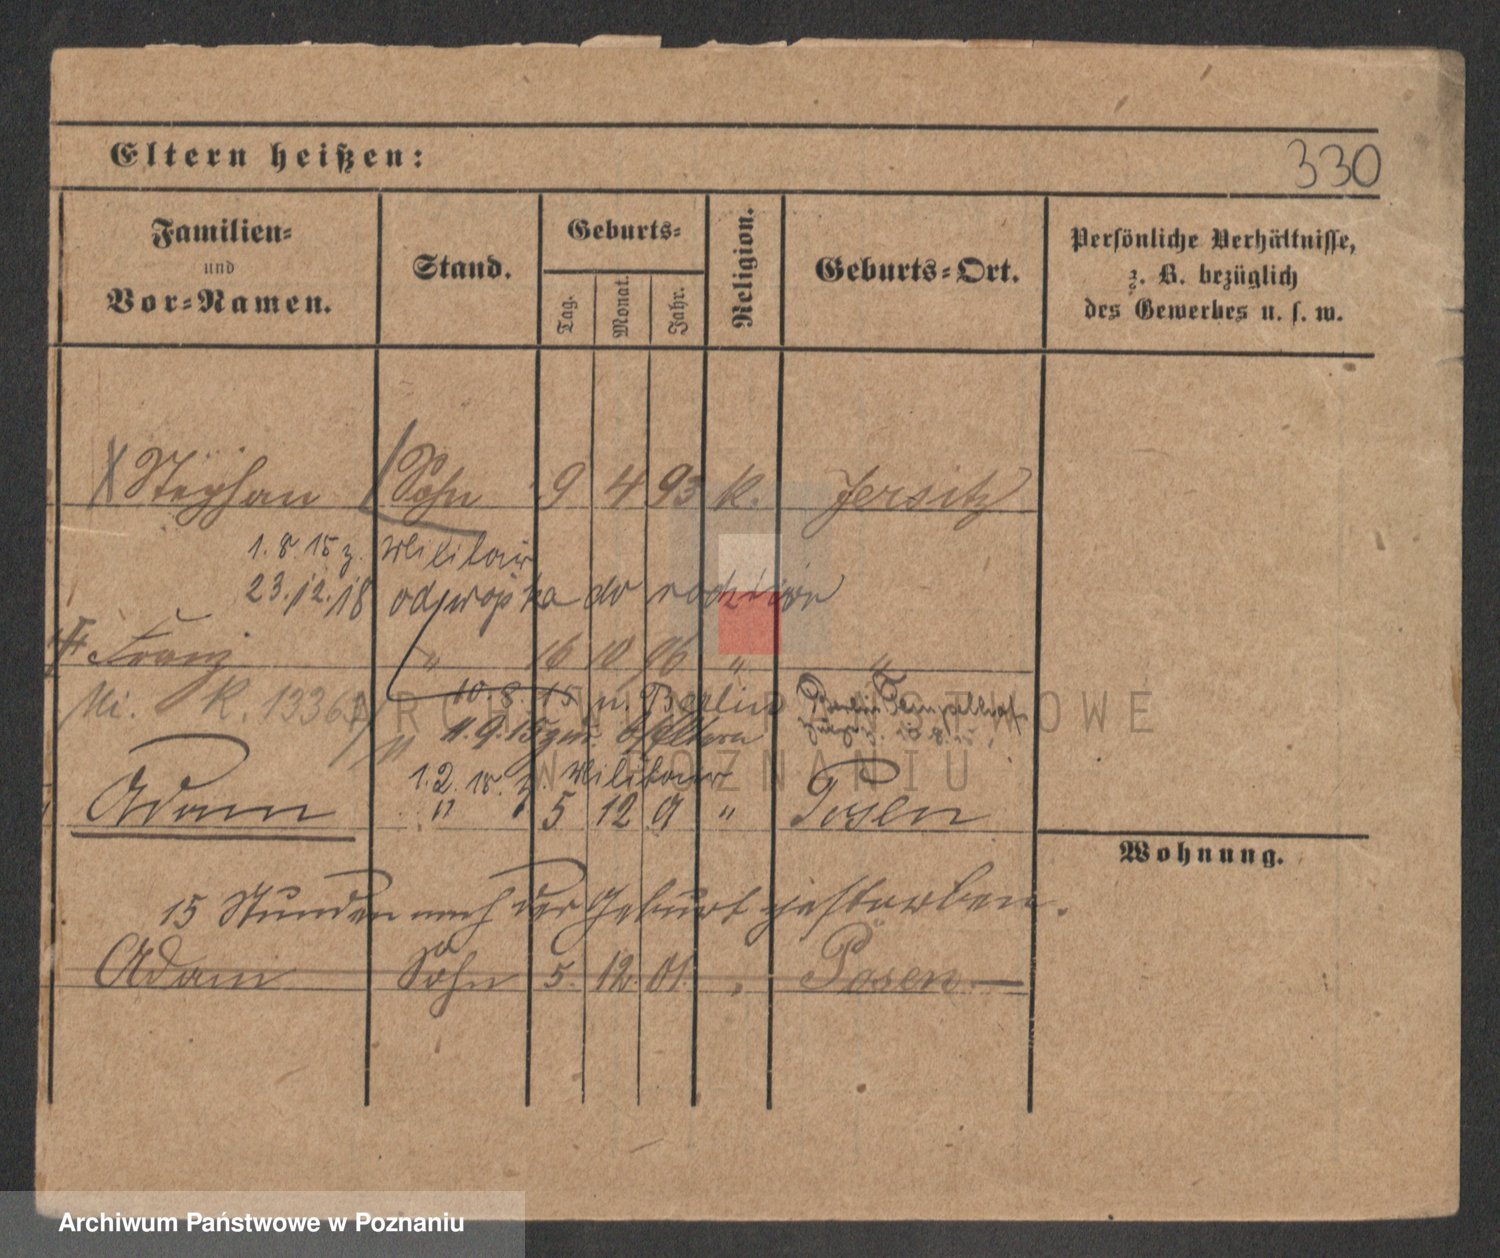 Eltern heißen:
330
Familien=
und
Vor=Namen.
Stand.
Geburts=
Tag.
Monat.
Jahr.
Religion.
Geburts=Ort.
Persönliche Verhältnisse,
z. B. bezüglich
des Gewerbes u. s. w.
Stephan Sohn 9 4 93 k. Jersitz
1. 8. 15 z. Militair
23. 12. 18 do
Franz " 16 10 96 " "
10. 8. 15 n. Berlin
Mi. K. 1336
11. 9. 15 Eltern
1. 2. z. Militair
Adam " 5 12 01 " Posen
Wohnung.
15 Stunden nach der Geburt gestorben.
Adam Sohn 5. 12. 01. " Posen
ARCHIWUM PAŃSTWOWE
W POZNANIU
Archiwum Państwowe w Poznaniu